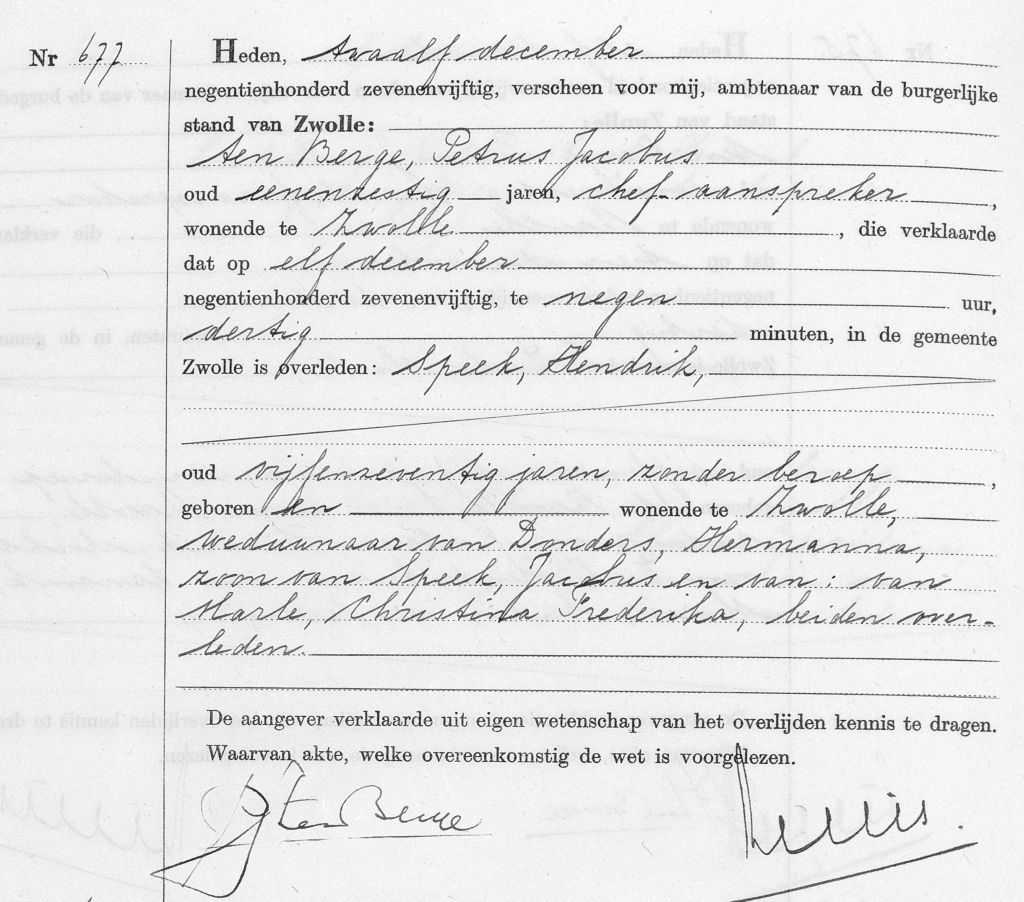 Nr 677 Heden, twaalf december
negentienhonderd zevenenvijftig, verscheen voor mij, ambtenaar van de burgerlijke
stand van Zwolle:
ten Berge, Petrus Jacobus
oud eenenzestig jaren, chef-aanspreker,
wonende te Zwolle, die verklaarde
dat op elf december
negentienhonderd zevenenvijftig, te negen uur,
dertig minuten, in de gemeente
Zwolle is overleden: Speek, Hendrik,
oud vijfenzeventig jaren, zonder beroep,
geboren en wonende te Zwolle,
weduwnaar van Donders, Hermanna,
zoon van Speek, Jacobus en van: van
Marle, Christina Frederika, beiden over-
leden.
De aangever verklaarde uit eigen wetenschap van het overlijden kennis te dragen.
Waarvan akte, welke overeenkomstig de wet is voorgelezen.
ten Berge